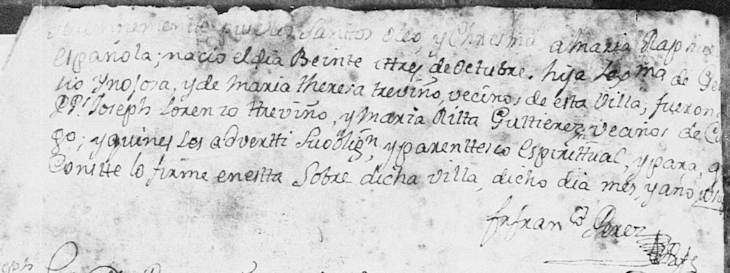 Solemnemente puse los Santos oleo, y Chrisma a maria Raph
española; nacio el dia Beinte ttres de octubre. hija lexma de
cio Ynojosa, y de Maria theresa treviño, vecinos de esta Villa, fueron
PPs. Joseph Lorenzo ttreviño, y Maria Ritta Guttierez, vecinos de Ca
go; y quines les advertti su oblign, y parenttesco espirittual, y para, q
Constte lo firme en estta Sobre dicha villa, dicho dia mes, y año,
fr franco Perez